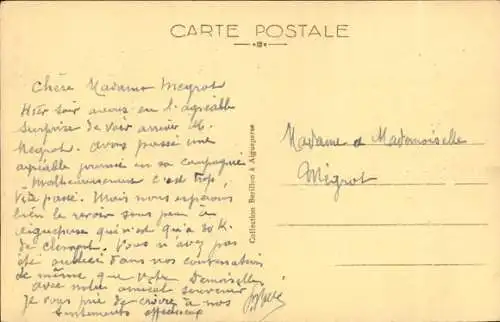 CARTE POSTALE
Chère Madame Meyrot
Hier soir avons eu l'agréable
surprise de voir arriver M.
Meyrot. Avons passé une
agréable journée en sa compagnie.
Malheureusement c'est trop
vite passé. Mais nous espérons
bien le revoir sous peu à
Aigueperse qui n'est qu'à 30 K.
de Clermont. Vous n'avez pas
été oubliée dans nos conversations
de même, que votre Demoiselle
avec notre amical souvenir
Je vous prie de croire à nos
sentiments affectueux
Collection Berillon à Aigueperse
Madame & Mademoiselle
Mégrot